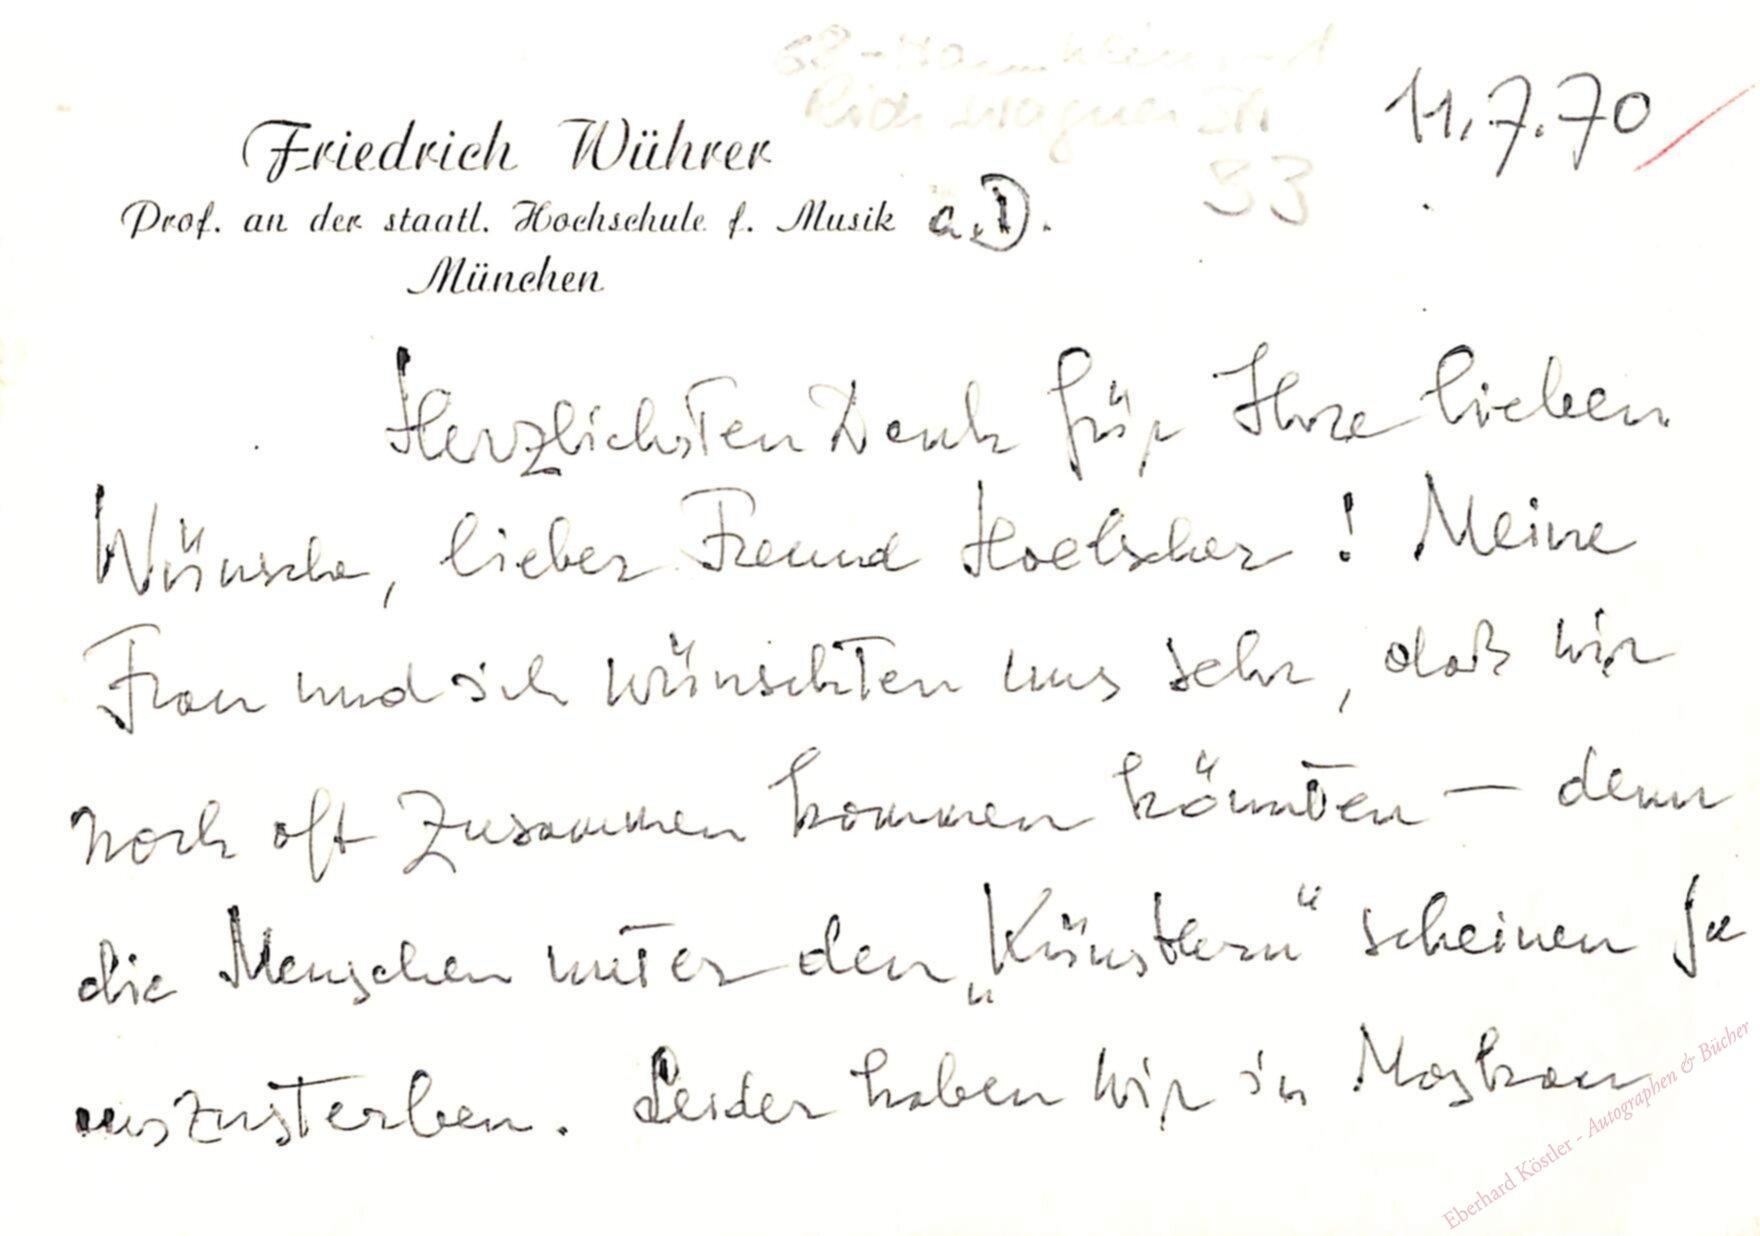 68-Mannheim-1
Rich Wagner Str
33
11.7.70
Friedrich Wührer
Prof. an der staatl. Hochschule f. Musik a.D.
München
Herzlichsten Dank für Ihre lieben
Wünsche, lieber Freund Hoelscher! Meine
Frau und ich wünschten uns sehr, daß wir
noch oft zusammen kommen könnten — denn
die Menschen unter den „Künstlern“ scheinen ja
auszusterben. Leider haben wir in Moskau
Eberhard Köstler - Autographen & Bücher